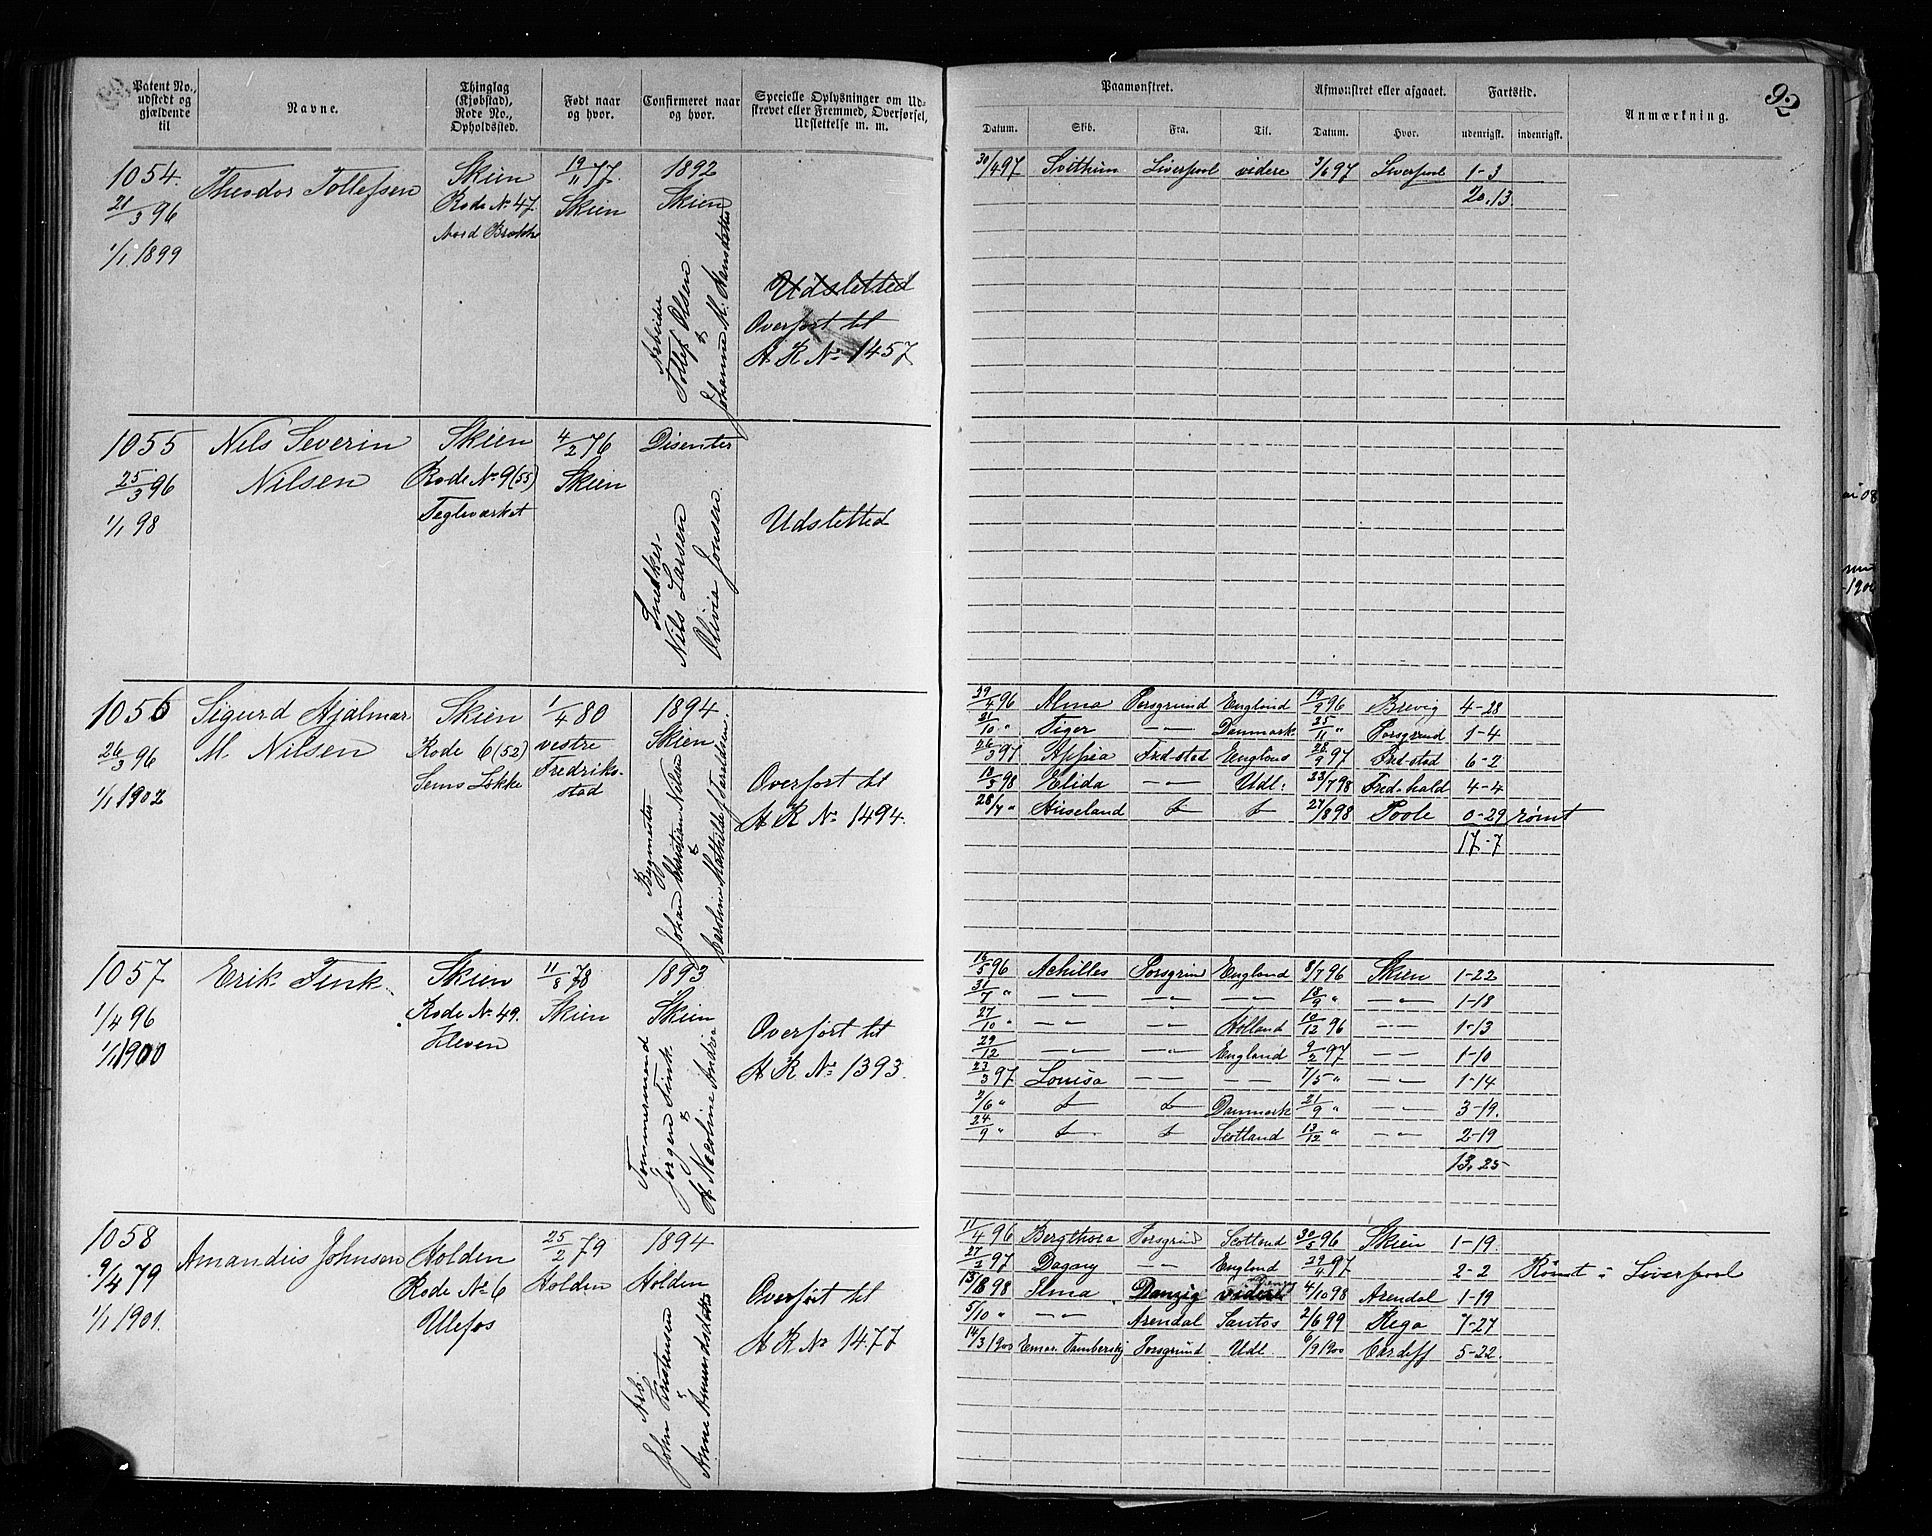 Patent No., udstedt og gjældende til
Navne.
Thinglag (Kjøbstad), Rode No., Opholdssted.
Født naar og hvor.
Confirmeret naar og hvor.
Specielle Oplysninger om Udskrevet eller Fremmed, Overførsel, Udslettelse m. m.
Paamønstret.
Afmønstret eller afgaaet.
Fartstid.
Anmærkning.
92
Datum. Skib. Fra. Til. Datum. Hvor. udenrigst. indenrigst.
1054.
21/3 96
1/1 1899
Theodor Tollefsen
Skien
Rode No 47.
Nord Brække
19/11 77.
Skien
1892
Skien
Arbeider
Tollef Olsen
&
Johanne M. Hansdatter
Udsletted
Overført til
A K No 1457
30/4 97 Svithun Liverpool videre 3/6 97 Liverpool 1-3
20.13
1055
25/3 96
1/1 98
Nils Severin
Nilsen
Skien
Rode No 9 (55)
Teglværket
4/2 76
Skien
Disenter
Snedker
Nils Larsen
Olivia Jonsen
Udsletted
1056
26/3 96
1/1 1902
Sigurd Hjalmar
M. Nilsen
Skien
Rode 6 (52)
Sems Løkke
1/4 80
vestre
Fredrik-
stad
1894
Skien
Bygmester
Johan Christian Nilsen
&
Caroline Mathilde
Overført til
A K No 1494.
/4 96 Alma Porsgrund England 19/9 96 Brevig 4-28
21/10 " Tiger — " — Danmark 25/11 " Porsgrund 1-4
26/3 97 Appia Frd-stad England 28/9 97 Frd-stad 6-2
18/3 98 Elida — " — Udl: 23/7 98 Fred-hald 4-4
28/7 " Huseland 27/8 98 Poole 0-29 rømt
17-7
1057
1/4 96
1/1 1900
Erik Fink.
Skien
Rode No 49.
Kleven
11/8 78
Skien
1893
Skien
Tømmermand
Jørgen Fink
&
A Nicoline Andrea
Overført til
A K No 1393.
16/5 96 Achilles Porsgrun England 8/7 96 Skien 1-22
31/7 " — " — — " — — " — 18/9 " — " — 1-18
27/10 " — " — — " — Holland 10/12 96 — " — 1-13
29/12 — " — — " — England 9/2 97 — " — 1-10
23/3 97 Louisa — " — — " — 7/5 " — " — 1-14
2/6 " Danmark 21/9 " — " — 3-19.
24/9 " Scotland 13/12 " — " — 2-19
13.25
1058
9/4 79
1/1 1901.
Amandus Johnsen
Holden
Rode No 6
Ulefos
25/2 79
Holden
1894
Holden
Arb.
John Kristensen
&
Anne Amundsdatter
Overført til
A K No 1477
11/4 96 Bergthora Porsgrund Scotland 30/5 96 Skien 1-19
27/2 97 Dagny — " — England 29/4 97 2-2 Rømt i Liverpool
13/8 98 Ilma Danzig videre 4/10 98 Arendal 1-19
5/10 " — " — Arendal Santos 2/6 99 Riga 7-27
14/3 1900 Porsgrund Udl. 6/9 1900 Cardiff 5-22.